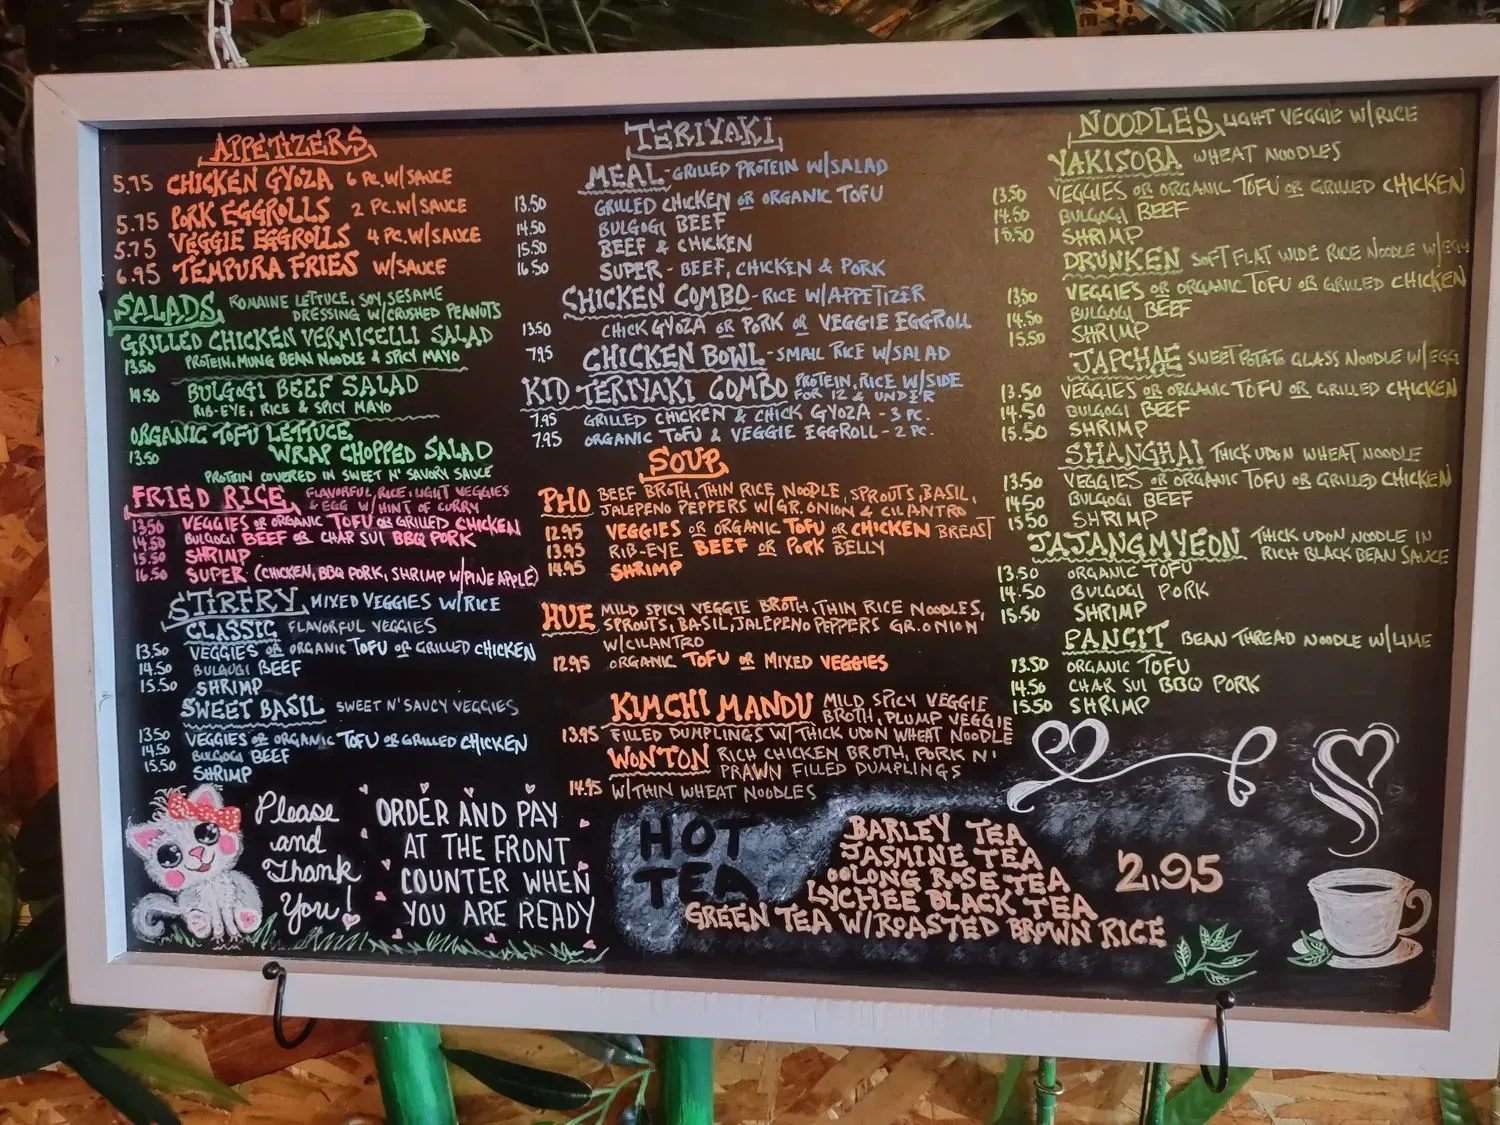 APPETIZERS
5.75 CHICKEN GYOZA 6 PC. W/SAUCE
5.75 PORK EGGROLLS 2 PC. W/SAUCE
5.75 VEGGIE EGGROLLS 4 PC. W/SAUCE
6.95 TEMPURA FRIES W/SAUCE
SALADS ROMAINE LETTUCE, SOY, SESAME
DRESSING W/CRUSHED PEANUTS
GRILLED CHICKEN VERMICELLI SALAD
13.50 PROTEIN, MUNG BEAN NOODLE & SPICY MAYO
14.50 BULGOGI BEEF SALAD
RIB-EYE, RICE & SPICY MAYO
ORGANIC TOFU LETTUCE
13.50 WRAP CHOPPED SALAD
PROTEIN COVERED IN SWEET N' SAVORY SAUCE
FRIED RICE FLAVORFUL RICE, LIGHT VEGGIES
& EGG W/ HINT OF CURRY
13.50 VEGGIES OR ORGANIC TOFU OR GRILLED CHICKEN
14.50 BULGOGI BEEF OR CHAR SUI BBQ PORK
15.50 SHRIMP
16.50 SUPER (CHICKEN, BBQ PORK, SHRIMP W/PINEAPPLE)
STIRFRY MIXED VEGGIES W/RICE
CLASSIC FLAVORFUL VEGGIES
13.50 VEGGIES OR ORGANIC TOFU OR GRILLED CHICKEN
14.50 BULGOGI BEEF
15.50 SHRIMP
SWEET BASIL SWEET N' SAUCY VEGGIES
13.50 VEGGIES OR ORGANIC TOFU OR GRILLED CHICKEN
14.50 BULGOGI BEEF
15.50 SHRIMP
Please
and
Thank
You!
ORDER AND PAY
AT THE FRONT
COUNTER WHEN
YOU ARE READY
TERIYAKI
MEAL - GRILLED PROTEIN W/SALAD
13.50 GRILLED CHICKEN OR ORGANIC TOFU
14.50 BULGOGI BEEF
15.50 BEEF & CHICKEN
16.50 SUPER - BEEF, CHICKEN & PORK
CHICKEN COMBO - RICE W/APPETIZER
13.50 CHICK GYOZA OR PORK OR VEGGIE EGGROLL
7.95 CHICKEN BOWL - SMALL RICE W/SALAD
KID TERIYAKI COMBO PROTEIN, RICE W/SIDE
FOR 12 & UNDER
7.95 GRILLED CHICKEN & CHICK GYOZA - 3 PC.
7.95 ORGANIC TOFU & VEGGIE EGGROLL - 2 PC.
SOUP
PHO BEEF BROTH, THIN RICE NOODLE, SPROUTS, BASIL,
JALEPENO PEPPERS W/GR. ONION & CILANTRO
12.95 VEGGIES OR ORGANIC TOFU OR CHICKEN BREAST
13.95 RIB-EYE BEEF OR PORK BELLY
14.95 SHRIMP
HUE MILD SPICY VEGGIE BROTH, THIN RICE NOODLES,
SPROUTS, BASIL, JALEPENO PEPPERS GR. ONION
W/CILANTRO
12.95 ORGANIC TOFU OR MIXED VEGGIES
KIMCHI MANDU MILD SPICY VEGGIE
BROTH, PLUMP VEGGIE
13.95 FILLED DUMPLINGS W/THICK UDON WHEAT NOODLE
WONTON RICH CHICKEN BROTH, PORK N'
PRAWN FILLED DUMPLINGS
14.95 W/THIN WHEAT NOODLES
HOT
TEA
BARLEY TEA
JASMINE TEA
OOLONG ROSE TEA
LYCHEE BLACK TEA
GREEN TEA W/ROASTED BROWN RICE
2.95
NOODLES, LIGHT VEGGIE W/RICE
YAKISOBA WHEAT NOODLES
13.50 VEGGIES OR ORGANIC TOFU OR GRILLED CHICKEN
14.50 BULGOGI BEEF
15.50 SHRIMP
DRUNKEN SOFT FLAT WIDE RICE NOODLE W/EGG
13.50 VEGGIES OR ORGANIC TOFU OR GRILLED CHICKEN
14.50 BULGOGI BEEF
15.50 SHRIMP
JAPCHAE SWEET POTATO GLASS NOODLE W/EGG
13.50 VEGGIES OR ORGANIC TOFU OR GRILLED CHICKEN
14.50 BULGOGI BEEF
15.50 SHRIMP
SHANGHAI THICK UDON WHEAT NOODLE
13.50 VEGGIES OR ORGANIC TOFU OR GRILLED CHICKEN
14.50 BULGOGI BEEF
15.50 SHRIMP
JAJANGMYEON THICK UDON NOODLE IN
RICH BLACK BEAN SAUCE
13.50 ORGANIC TOFU
14.50 BULGOGI PORK
15.50 SHRIMP
PANCIT BEAN THREAD NOODLE W/LIME
13.50 ORGANIC TOFU
14.50 CHAR SUI BBQ PORK
15.50 SHRIMP